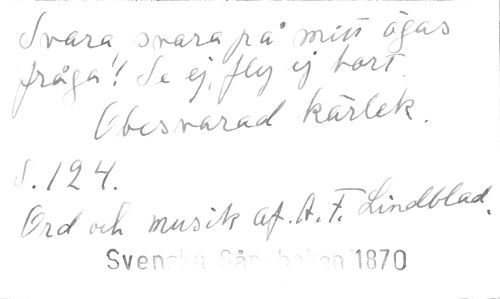 Svara, svara på mitt ögas
fråga! Se ej, fly ej bort.
Obesvarad kärlek.
S. 124.
Ord och musik af. A. F. Lindblad.
Svenska Sångboken 1870